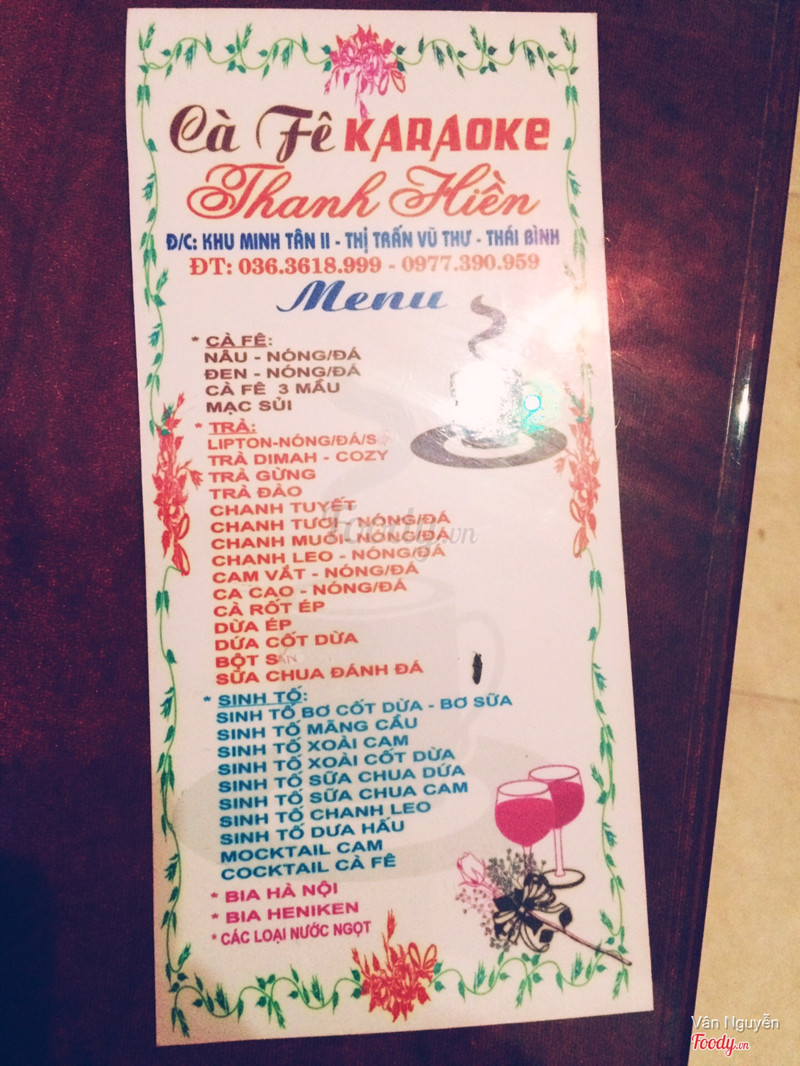 Cà Fê KARAOKE
Thanh Hiền
Đ/C: KHU MINH TÂN II - THỊ TRẤN VŨ THƯ - THÁI BÌNH
ĐT: 036.3618.999 - 0977.390.959
Menu
* CÀ FÊ:
NÂU - NÓNG/ĐÁ
ĐEN - NÓNG/ĐÁ
CÀ FÊ 3 MẦU
MẠC SỦI
* TRÀ:
LIPTON-NÓNG/ĐÁ/S
TRÀ DIMAH - COZY
TRÀ GỪNG
TRÀ ĐÀO
CHANH TUYẾT
CHANH TƯƠI - NÓNG/ĐÁ
CHANH MUỐI - NÓNG/ĐÁ
CHANH LEO - NÓNG/ĐÁ
CAM VẮT - NÓNG/ĐÁ
CA CAO - NÓNG/ĐÁ
CÀ RỐT ÉP
DỪA ÉP
DỨA CỐT DỪA
BỘT SẮN
SỮA CHUA ĐÁNH ĐÁ
* SINH TỐ:
SINH TỐ BƠ CỐT DỪA - BƠ SỮA
SINH TỐ MÃNG CẦU
SINH TỐ XOÀI CAM
SINH TỐ XOÀI CỐT DỪA
SINH TỐ SỮA CHUA DỨA
SINH TỐ SỮA CHUA CAM
SINH TỐ CHANH LEO
SINH TỐ DƯA HẤU
MOCKTAIL CAM
COCKTAIL CÀ FÊ
* BIA HÀ NỘI
* BIA HENIKEN
* CÁC LOẠI NƯỚC NGỌT
Foody.vn
Vân Nguyễn
Foody.vn